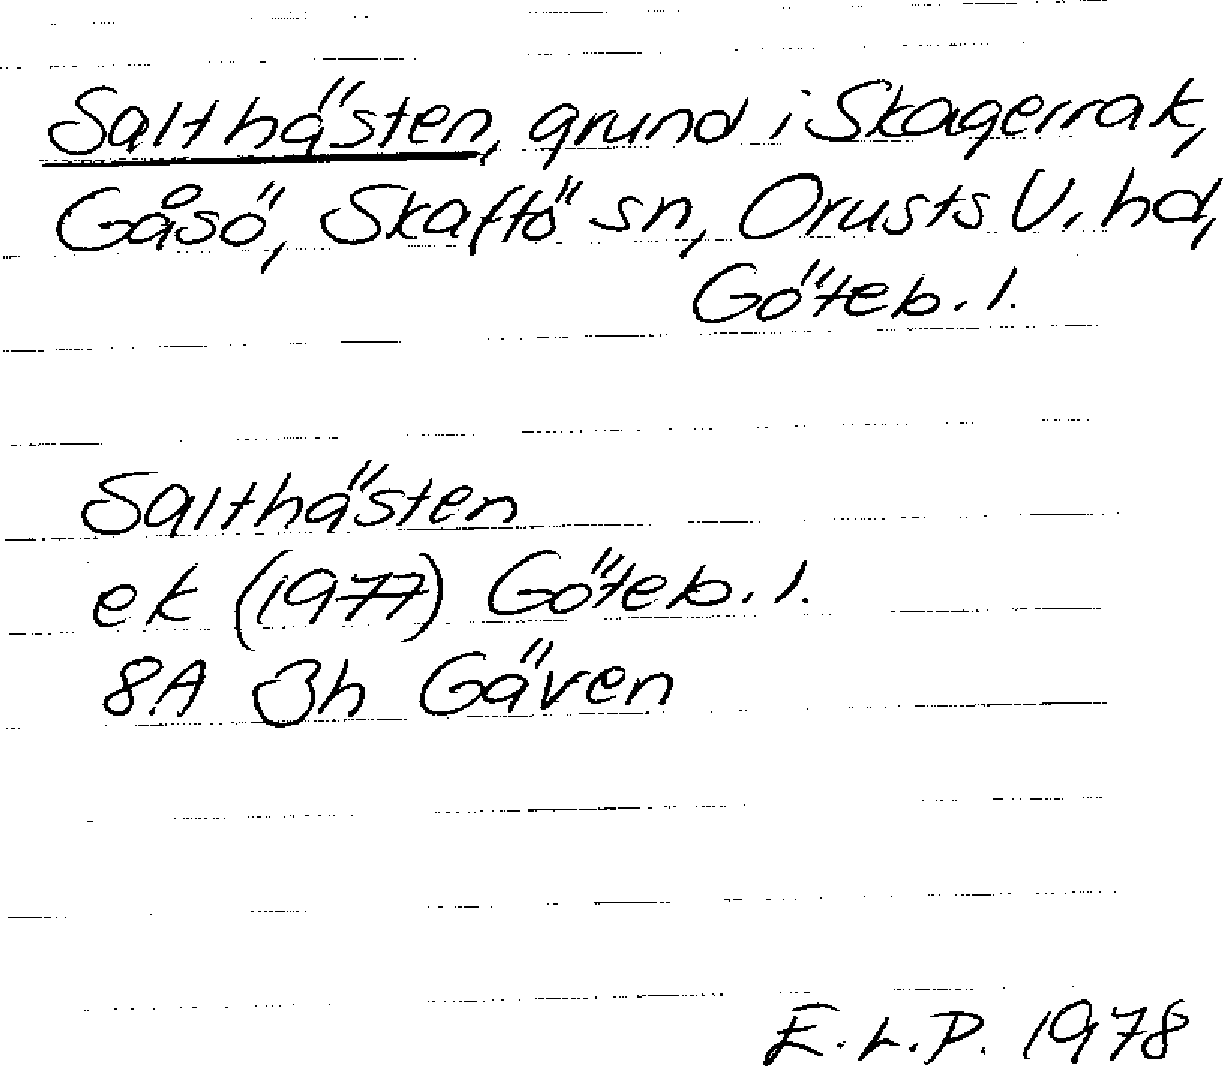 Salthästen, grund i Skagerrak,
Gåsö, Skaftö sn, Orusts V. hd,
Göteb. l.
Salthästen
ek (1977) Göteb. l.
8A 3h Gäven
E.L.P. 1978